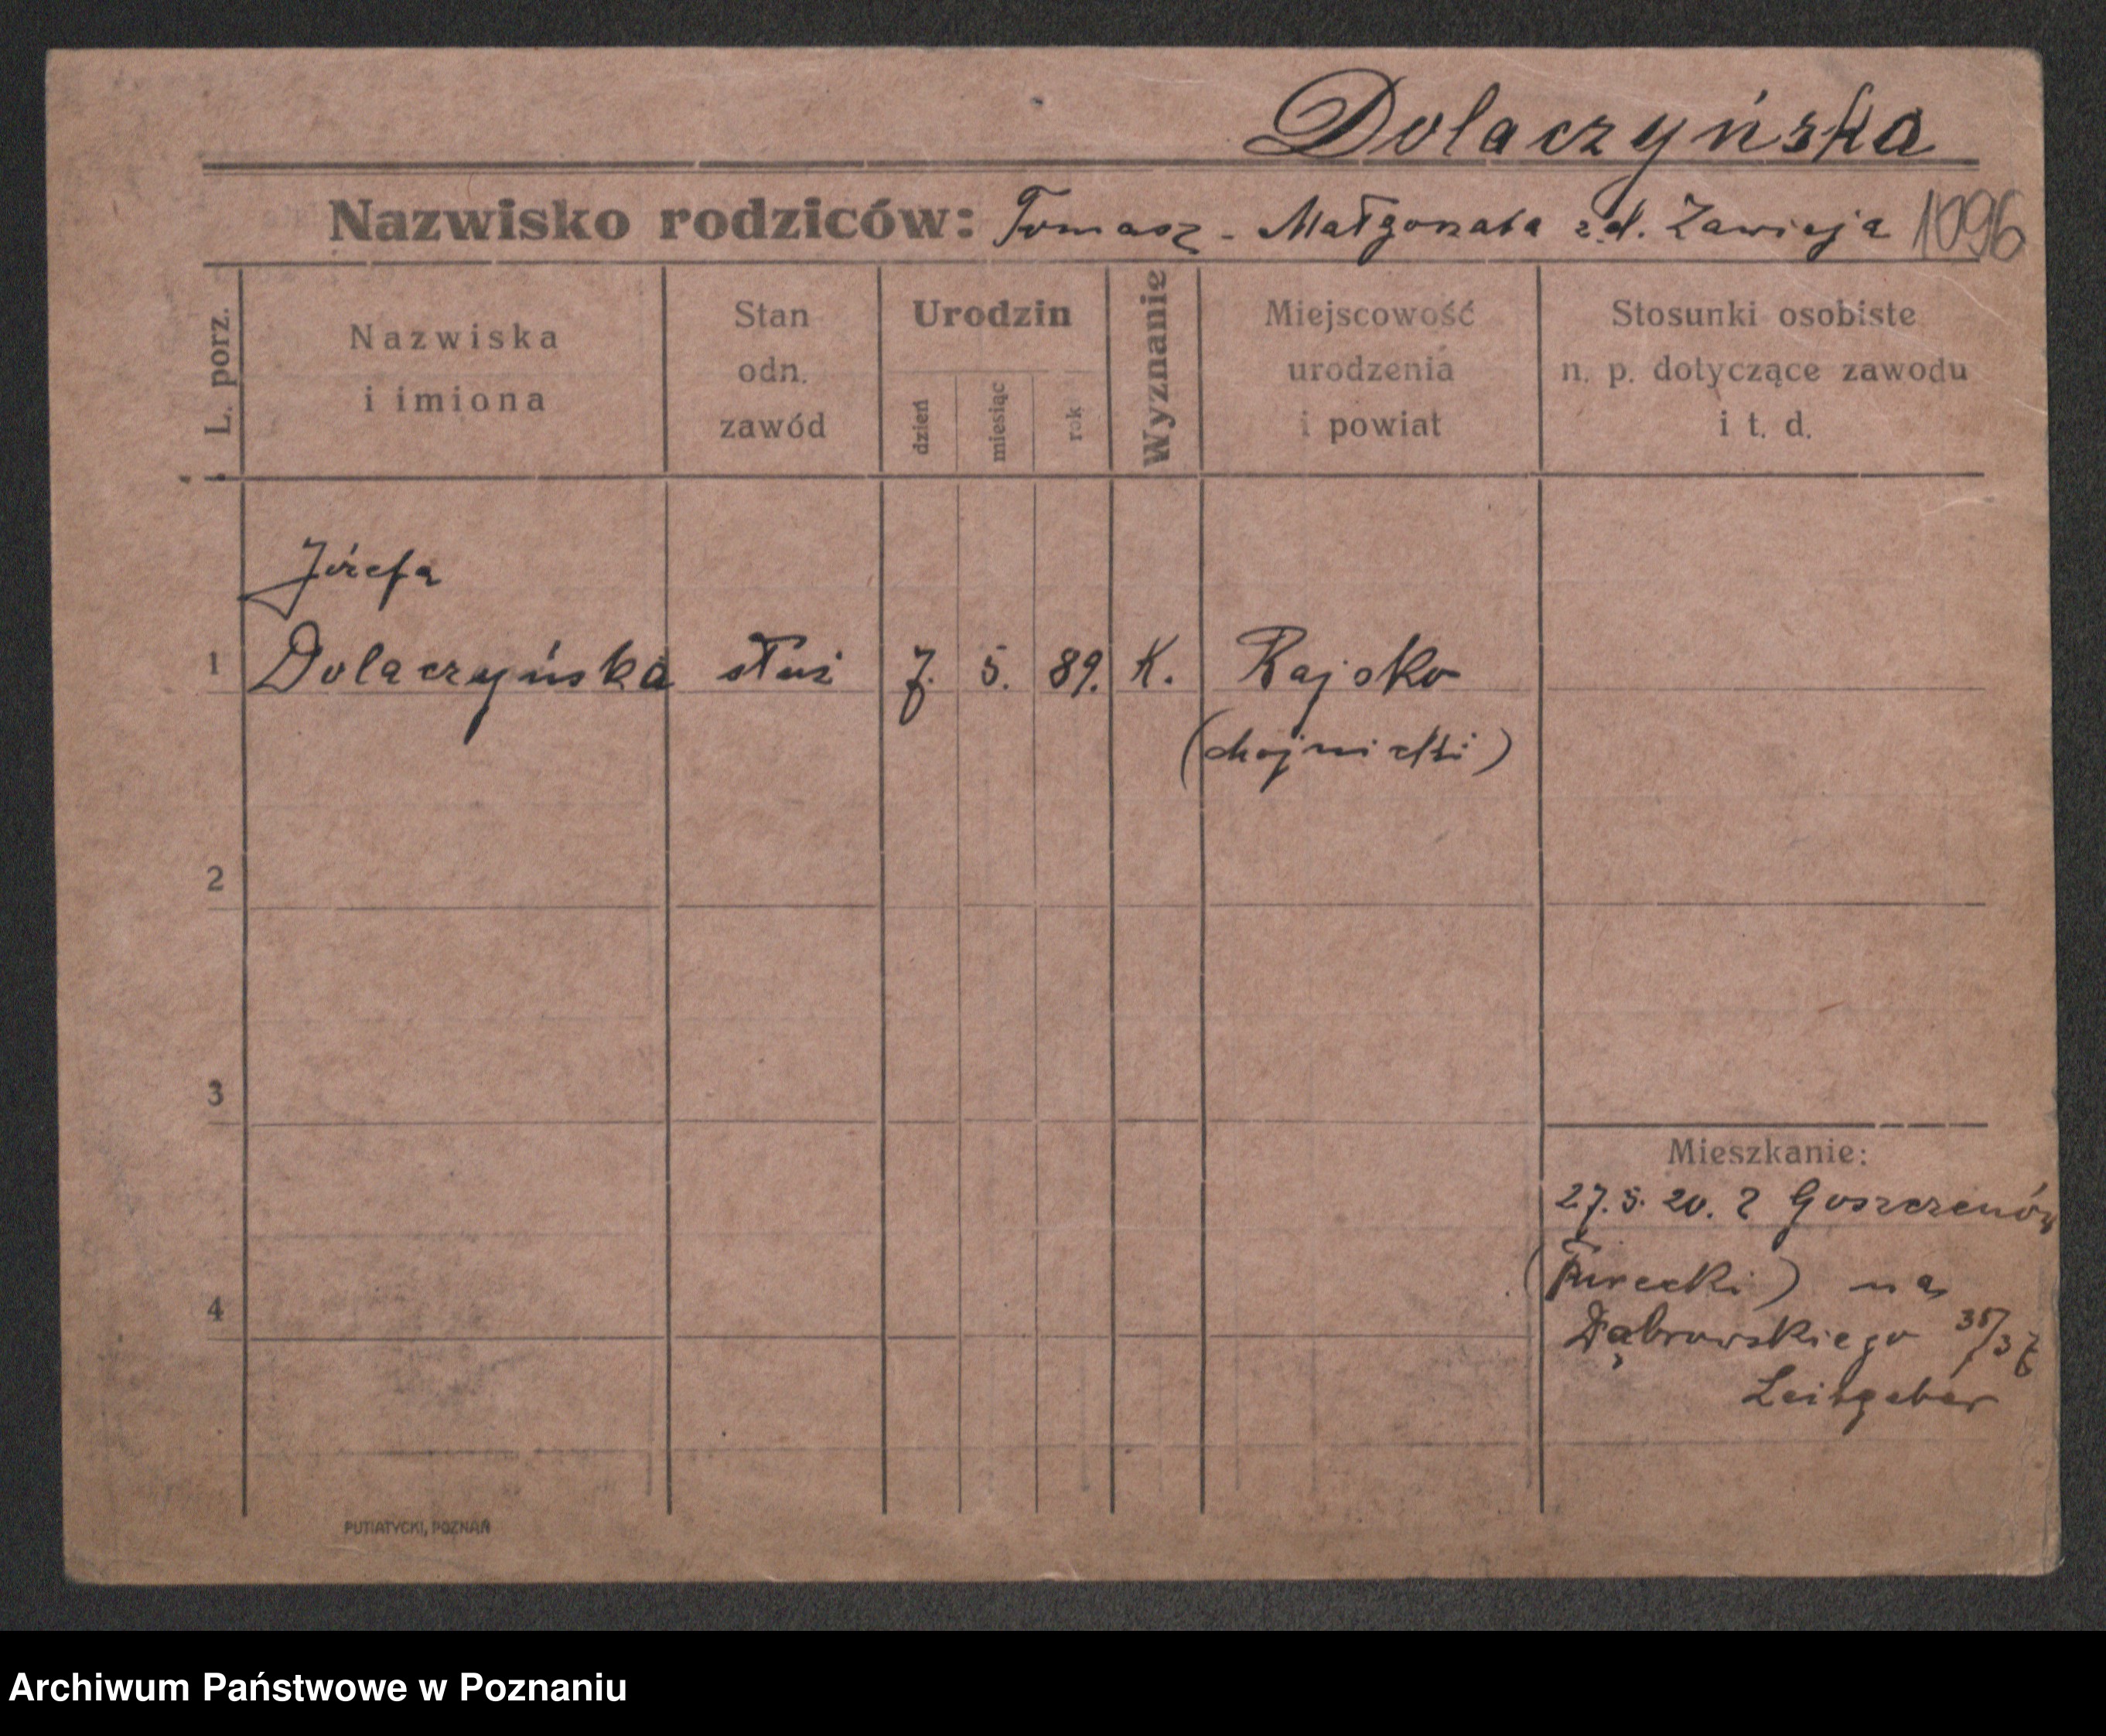 Dolaczyńska
Nazwisko rodziców: Tomasz - Małgorzata z d. Zawieja 1096
L. porz.
Nazwiska i imiona
Stan odn. zawód
Urodzin
dzień
miesiąc
rok
Wyznanie
Miejscowość urodzenia i powiat
Stosunki osobiste n. p. dotyczące zawodu i t. d.
Józefa
1 Dolaczyńska służ 7. 5. 89. K. Rajsko
2
3
4
Mieszkanie:
27. 5. 20. z Goszczenów
(Turecki) na
Dąbrowskiego 35/37
Leitgeber
PUTIATYCKI, POZNAŃ
Archiwum Państwowe w Poznaniu